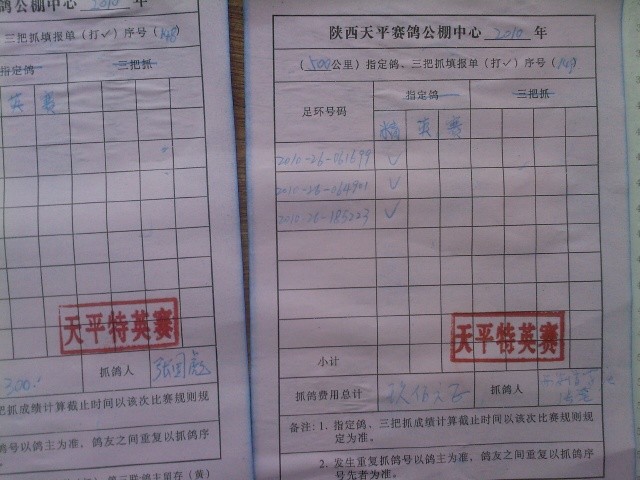 鸽公棚中心 2010 年
三把抓填报单(打✓)序号(148)
指定鸽 三把抓
英 赛
天平特英赛
300.
抓鸽人
把抓成绩计算截止时间以该次比赛规则规
鸽号以鸽主为准,鸽友之间重复以抓鸽序
陕西天平赛鸽公棚中心 2010 年
(500公里)指定鸽、三把抓填报单(打✓)序号(149)
足环号码 指定鸽 三把抓
英 赛
2010-26-061699 ✓
2010-26-064901 ✓
2010-26-185223 ✓
天平特英赛
小计
抓鸽费用总计 玖佰元正 抓鸽人
备注:1. 指定鸽、三把抓成绩计算截止时间以该次比赛规则规
定为准。
2. 发生重复抓鸽号以鸽主为准,鸽友之间重复以抓鸽序
号先者为准。